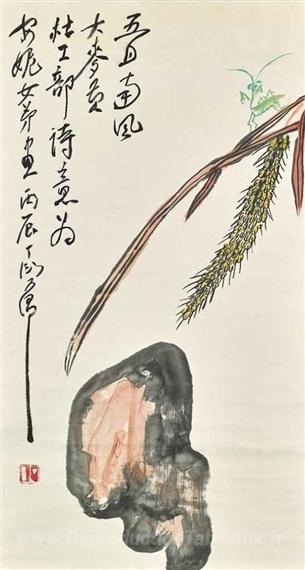 五月南風
大麥黃
杜工部詩意為
安妮女弟畫丙辰丁衍庸